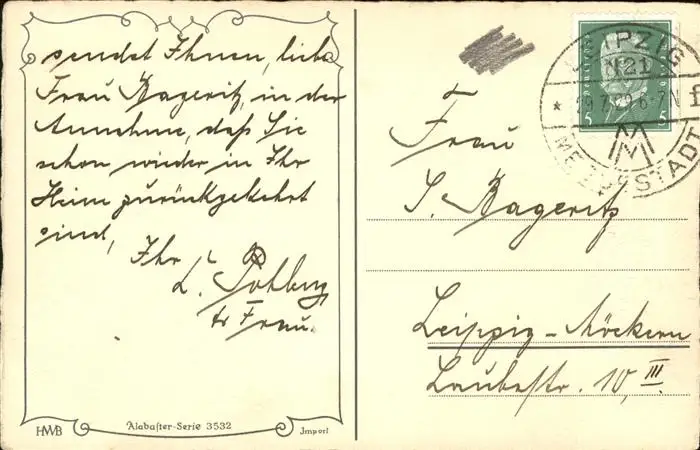 sendet Ihnen, liebe
Frau Bageritz, in der
Annahme, daß Sie
schon wieder in Ihr
Heim zurückgekehrt
sind,
Ihr
L.
& Frau.
HWB
Alabaster-Serie 3532
Import
LEIPZIG
N21
* 29.7.29.6-7N f
MM
MESSESTADT
5 5
Frau
S. Bageritz
Leipzig-Möckern
Laubestr. 10, III.